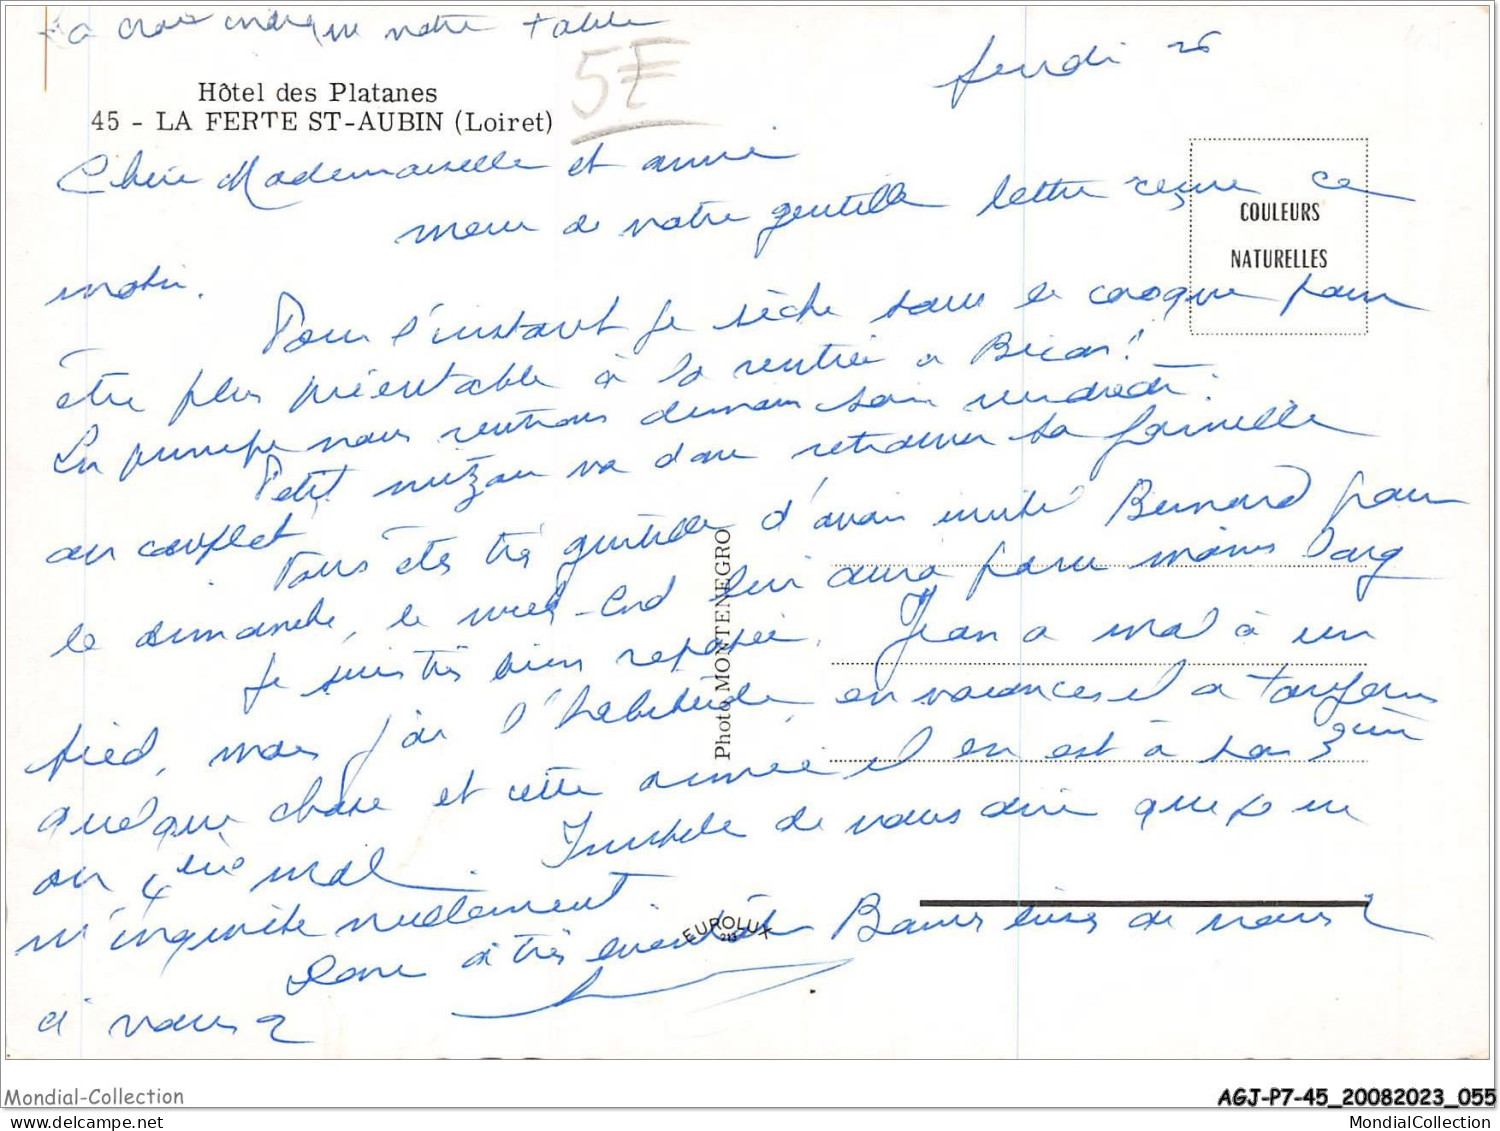 La croix indique notre table
5F
jeudi 26
Hôtel des Platanes
45 - LA FERTE ST-AUBIN (Loiret)
Chère Mademoiselle et amie
merci de votre gentille lettre reçue ce
matin.
COULEURS
NATURELLES
Pour l'instant je sèche sous le casque pour
être plus présentable à la rentrée a
En principe nous rentrons demain soir vendredi.
Petit va donc retrouver sa famille
au complet
Vous êtes très gentille d'avoir invité Bernard pour
le dimanche, le week-end lui aura paru moins long
Je suis très bien reposée. Jean a mal à un
pied, mais j'ai l'habitude en vacances il a toujours
quelque chose et cette année il en est à son 3ème
ou 4ème mal. Inutile de vous dire que je ne
m'inquiète nullement.
Donc à très bientôt Bons baisers de nous 2
à vous 2
Photo MONTENEGRO
EUROLUX
Mondial-Collection
AGJ-P7-45_20082023_055
www.delcampe.net
MondialCollection